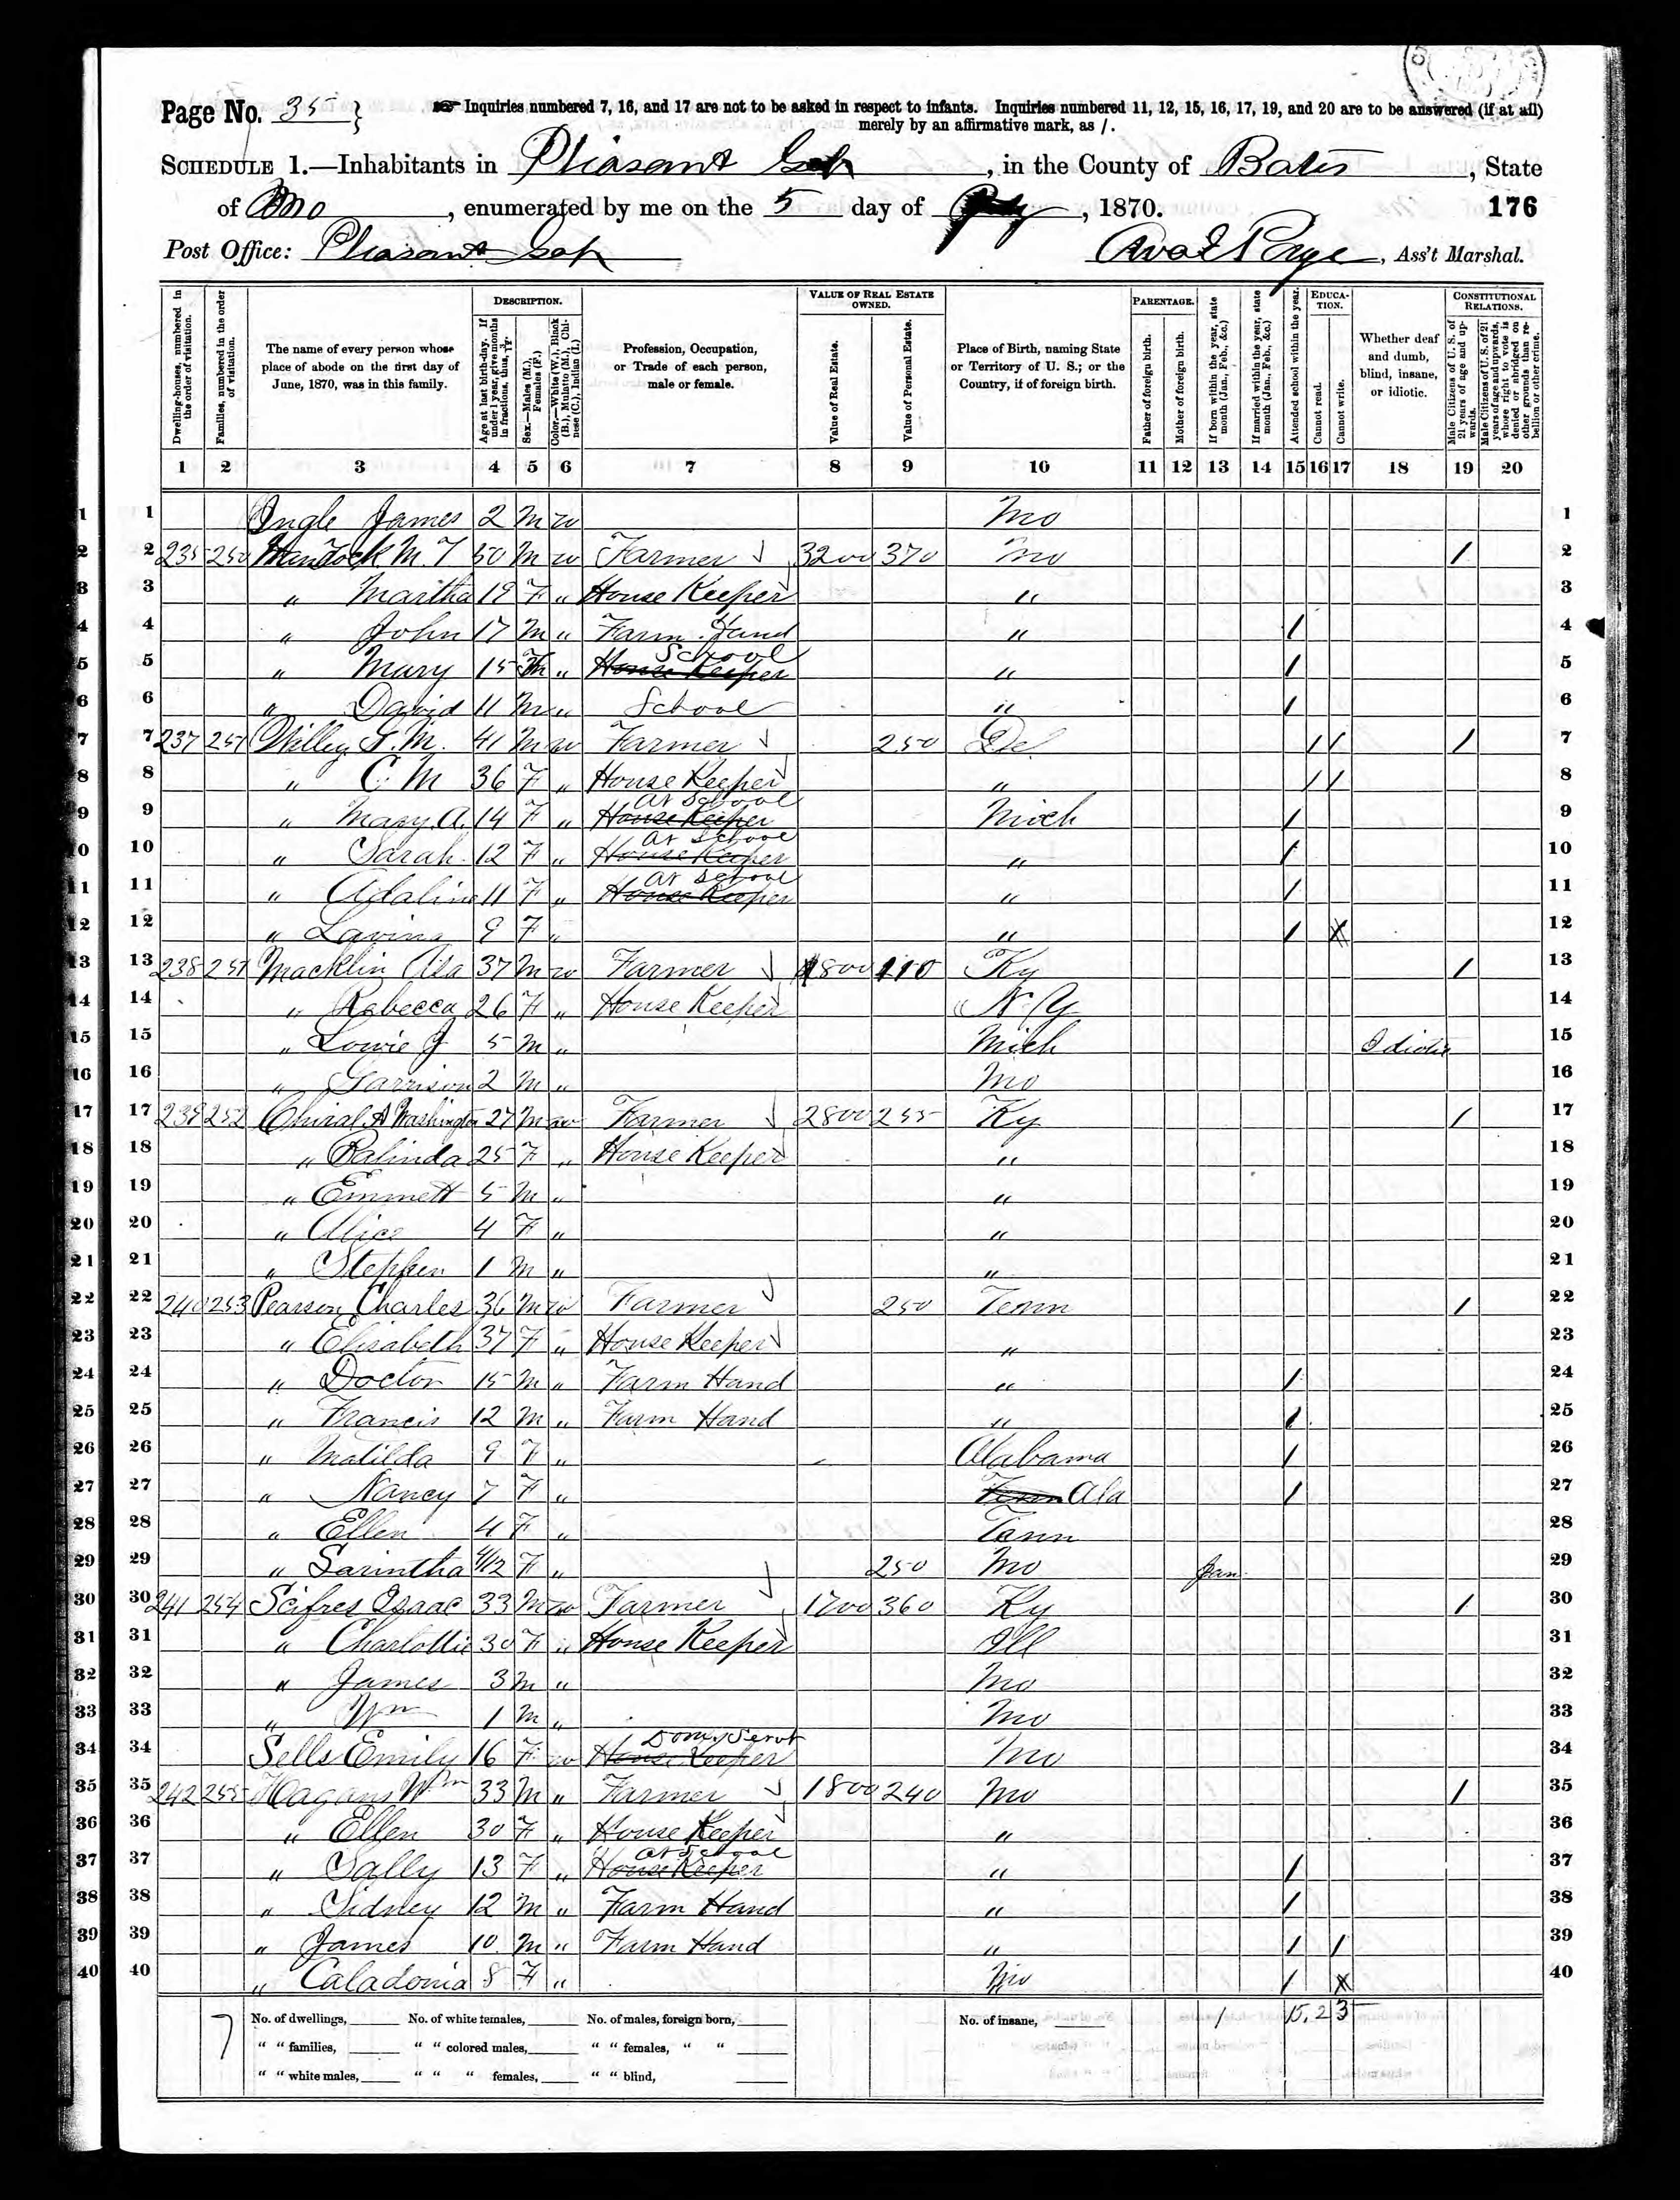 Page No. 35
Inquiries numbered 7, 16, and 17 are not to be asked in respect to infants. Inquiries numbered 11, 12, 15, 16, 17, 19, and 20 are to be answered (if at all)
merely by an affirmative mark, as /.
SCHEDULE 1.—Inhabitants in Pleasant Gap, in the County of Bates, State
of Mo, enumerated by me on the 5 day of July, 1870.
176
Post Office: Pleasant Gap
, Ass't Marshal.
Dwelling-houses, numbered in the order of visitation.
Families, numbered in the order of visitation.
The name of every person whose place of abode on the first day of June, 1870, was in this family.
DESCRIPTION.
Age at last birth-day. If under 1 year, give months in fractions, thus,
Sex.—Males (M.), Females (F.)
Color.—White (W.), Black (B.), Mulatto (M.), Chinese (C.), Indian (I.)
Profession, Occupation, or Trade of each person, male or female.
VALUE OF REAL ESTATE OWNED.
Value of Real Estate.
Value of Personal Estate.
Place of Birth, naming State or Territory of U. S.; or the Country, if of foreign birth.
PARENTAGE.
Father of foreign birth.
Mother of foreign birth.
If born within the year, state month (Jan., Feb., &c.)
If married within the year, state month (Jan., Feb., &c.)
Attended school within the year.
EDUCATION.
Cannot read.
Cannot write.
Whether deaf and dumb, blind, insane, or idiotic.
CONSTITUTIONAL RELATIONS.
Male Citizens of U. S. of 21 years of age and upwards.
Male Citizens of U. S. of 21 years of age and upwards, whose right to vote is denied or abridged on other grounds than rebellion or other crime.
1 2 3 4 5 6 7 8 9 10 11 12 13 14 15 16 17 18 19 20
1 Ingle James 2 M w Mo 1
2 235 250 M. T 50 M w Farmer 3200 370 Mo / 2
3 " Martha 19 F " House Keeper " 3
4 " John 17 M " Farm Hand " / 4
5 " Mary 15 F " House Keeper School " / 5
6 " David 11 M " School " / 6
7 237 251 Willey 41 M w Farmer 250 Del / / / 7
8 " C. M 36 F " House Keeper " / / 8
9 " Mary A. 14 F " House Keeper At School Mich / 9
10 " Sarah 12 F " House Keeper At School " / 10
11 " Adaline 11 F " House Keeper At School " / 11
12 " Lavina 9 F " " / X 12
13 238 251 Macklin Asa 37 M w Farmer 1800 110 Ky / 13
14 " Rebecca 26 F " House Keeper N. Y. 14
15 " Lowie J 5 M " Mich Idiotic 15
16 " Garrison 2 M " Mo 16
17 239 252 A Washington 27 M w Farmer 2800 255 Ky / 17
18 " 25 F " House Keeper " 18
19 " Emmett 5 M " " 19
20 " Alice 4 F " " 20
21 " Stephen 1 M " " 21
22 240 253 Pearson Charles 36 M w Farmer 250 Tenn / 22
23 " Elisabeth 37 F " House Keeper " 23
24 " Doctor 15 M " Farm Hand " / 24
25 " Francis 12 M " Farm Hand " / 25
26 " Matilda 9 F " Alabama / 26
27 " Nancy 7 F " Tenn Ala / 27
28 " Ellen 4 F " Tenn 28
29 " Sarintha 4/12 F " 250 Mo Jan 29
30 241 254 Scifres Isaac 33 M w Farmer 1700 360 Ky / 30
31 " Charlottie 30 F " House Keeper Ill 31
32 " James 3 M " Mo 32
33 " Wm 1 M " Mo 33
34 Sells Emily 16 F w House Keeper Dom. Servt Mo 34
35 242 255 Hagans Wm 33 M " Farmer 1800 240 Mo / 35
36 " Ellen 30 F " House Keeper " 36
37 " Sally 13 F " House Keeper At School " / 37
38 " Sidney 12 M " Farm Hand " / 38
39 " James 10 M " Farm Hand " / / 39
40 " Caladonia 8 F " Mo / X 40
7 No. of dwellings, No. of white females, No. of males, foreign born, No. of insane, 1 15, 2 3
" " families, " " colored males, " " females, " "
" " white males, " " " females, " " blind,